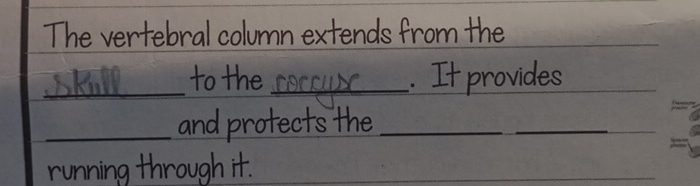 The vertebral column extends from the
skull to the coccyx. It provides
and protects the
running through it.